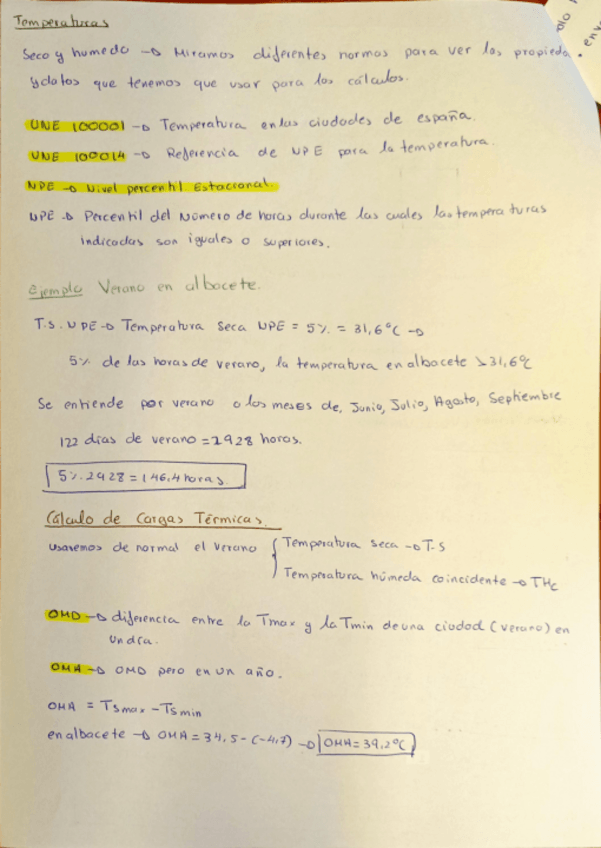 Temperaturas
Seco y humedo → Miramos diferentes normas para ver las propieda
y datos que tenemos que usar para los cálculos.
UNE 100001 → Temperatura en las ciudades de españa.
UNE 100014 → Referencia de NPE para la temperatura.
NPE → Nivel percentil Estacional.
NPE → Percentil del Número de horas durante las cuales las temperaturas
indicadas son iguales o superiores.
Ejemplo Verano en albacete.
T.S. NPE → Temperatura Seca NPE = 5% = 31,6°C →
5% de las horas de verano, la temperatura en albacete > 31,6°C
Se entiende por verano a los meses de, Junio, Julio, Agosto, Septiembre
122 días de verano = 2928 horas.
5%. 2928 = 146,4 horas
Cálculo de Cargas Térmicas.
Usaremos de normal el verano { Temperatura seca → T.S
Temperatura húmeda coincidente → THc
OMD → diferencia entre la Tmax y la Tmin de una ciudad (verano) en
un día.
OMA → OMD pero en un año.
OMA = Ts max - Ts min
en albacete → OMA = 34,5 - (-4,7) → OMA = 39,2°C